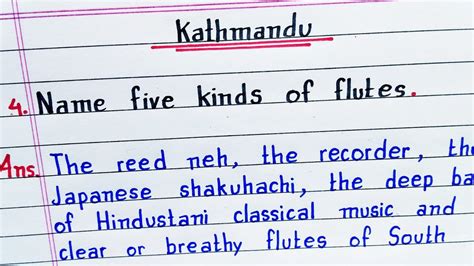 Kathmandu
4. Name five kinds of flutes.
Ans. The reed neh, the recorder, the
Japanese shakuhachi, the deep ba
of Hindustani classical music and
clear or breathy flutes of South